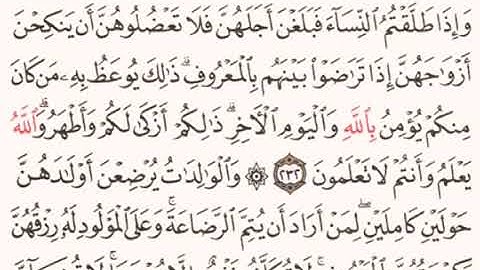 وَإِذَا طَلَّقْتُمُ ٱلنِّسَآءَ فَبَلَغْنَ أَجَلَهُنَّ فَلَا تَعْضُلُوهُنَّ أَن يَنكِحْنَ
أَزْوَٰجَهُنَّ إِذَا تَرَٰضَوْا۟ بَيْنَهُم بِٱلْمَعْرُوفِ ۗ ذَٰلِكَ يُوعَظُ بِهِۦ مَن كَانَ
مِنكُمْ يُؤْمِنُ بِٱللَّهِ وَٱلْيَوْمِ ٱلْأَخِرِ ۗ ذَٰلِكُمْ أَزْكَىٰ لَكُمْ وَأَطْهَرُ ۗ وَٱللَّهُ
يَعْلَمُ وَأَنتُمْ لَا تَعْلَمُونَ ٢٣٢ ۞ وَٱلْوَٰلِدَٰتُ يُرْضِعْنَ أَوْلَٰدَهُنَّ
حَوْلَيْنِ كَامِلَيْنِ ۖ لِمَنْ أَرَادَ أَن يُتِمَّ ٱلرَّضَاعَةَ ۚ وَعَلَى ٱلْمَوْلُودِ لَهُۥ رِزْقُهُنَّ